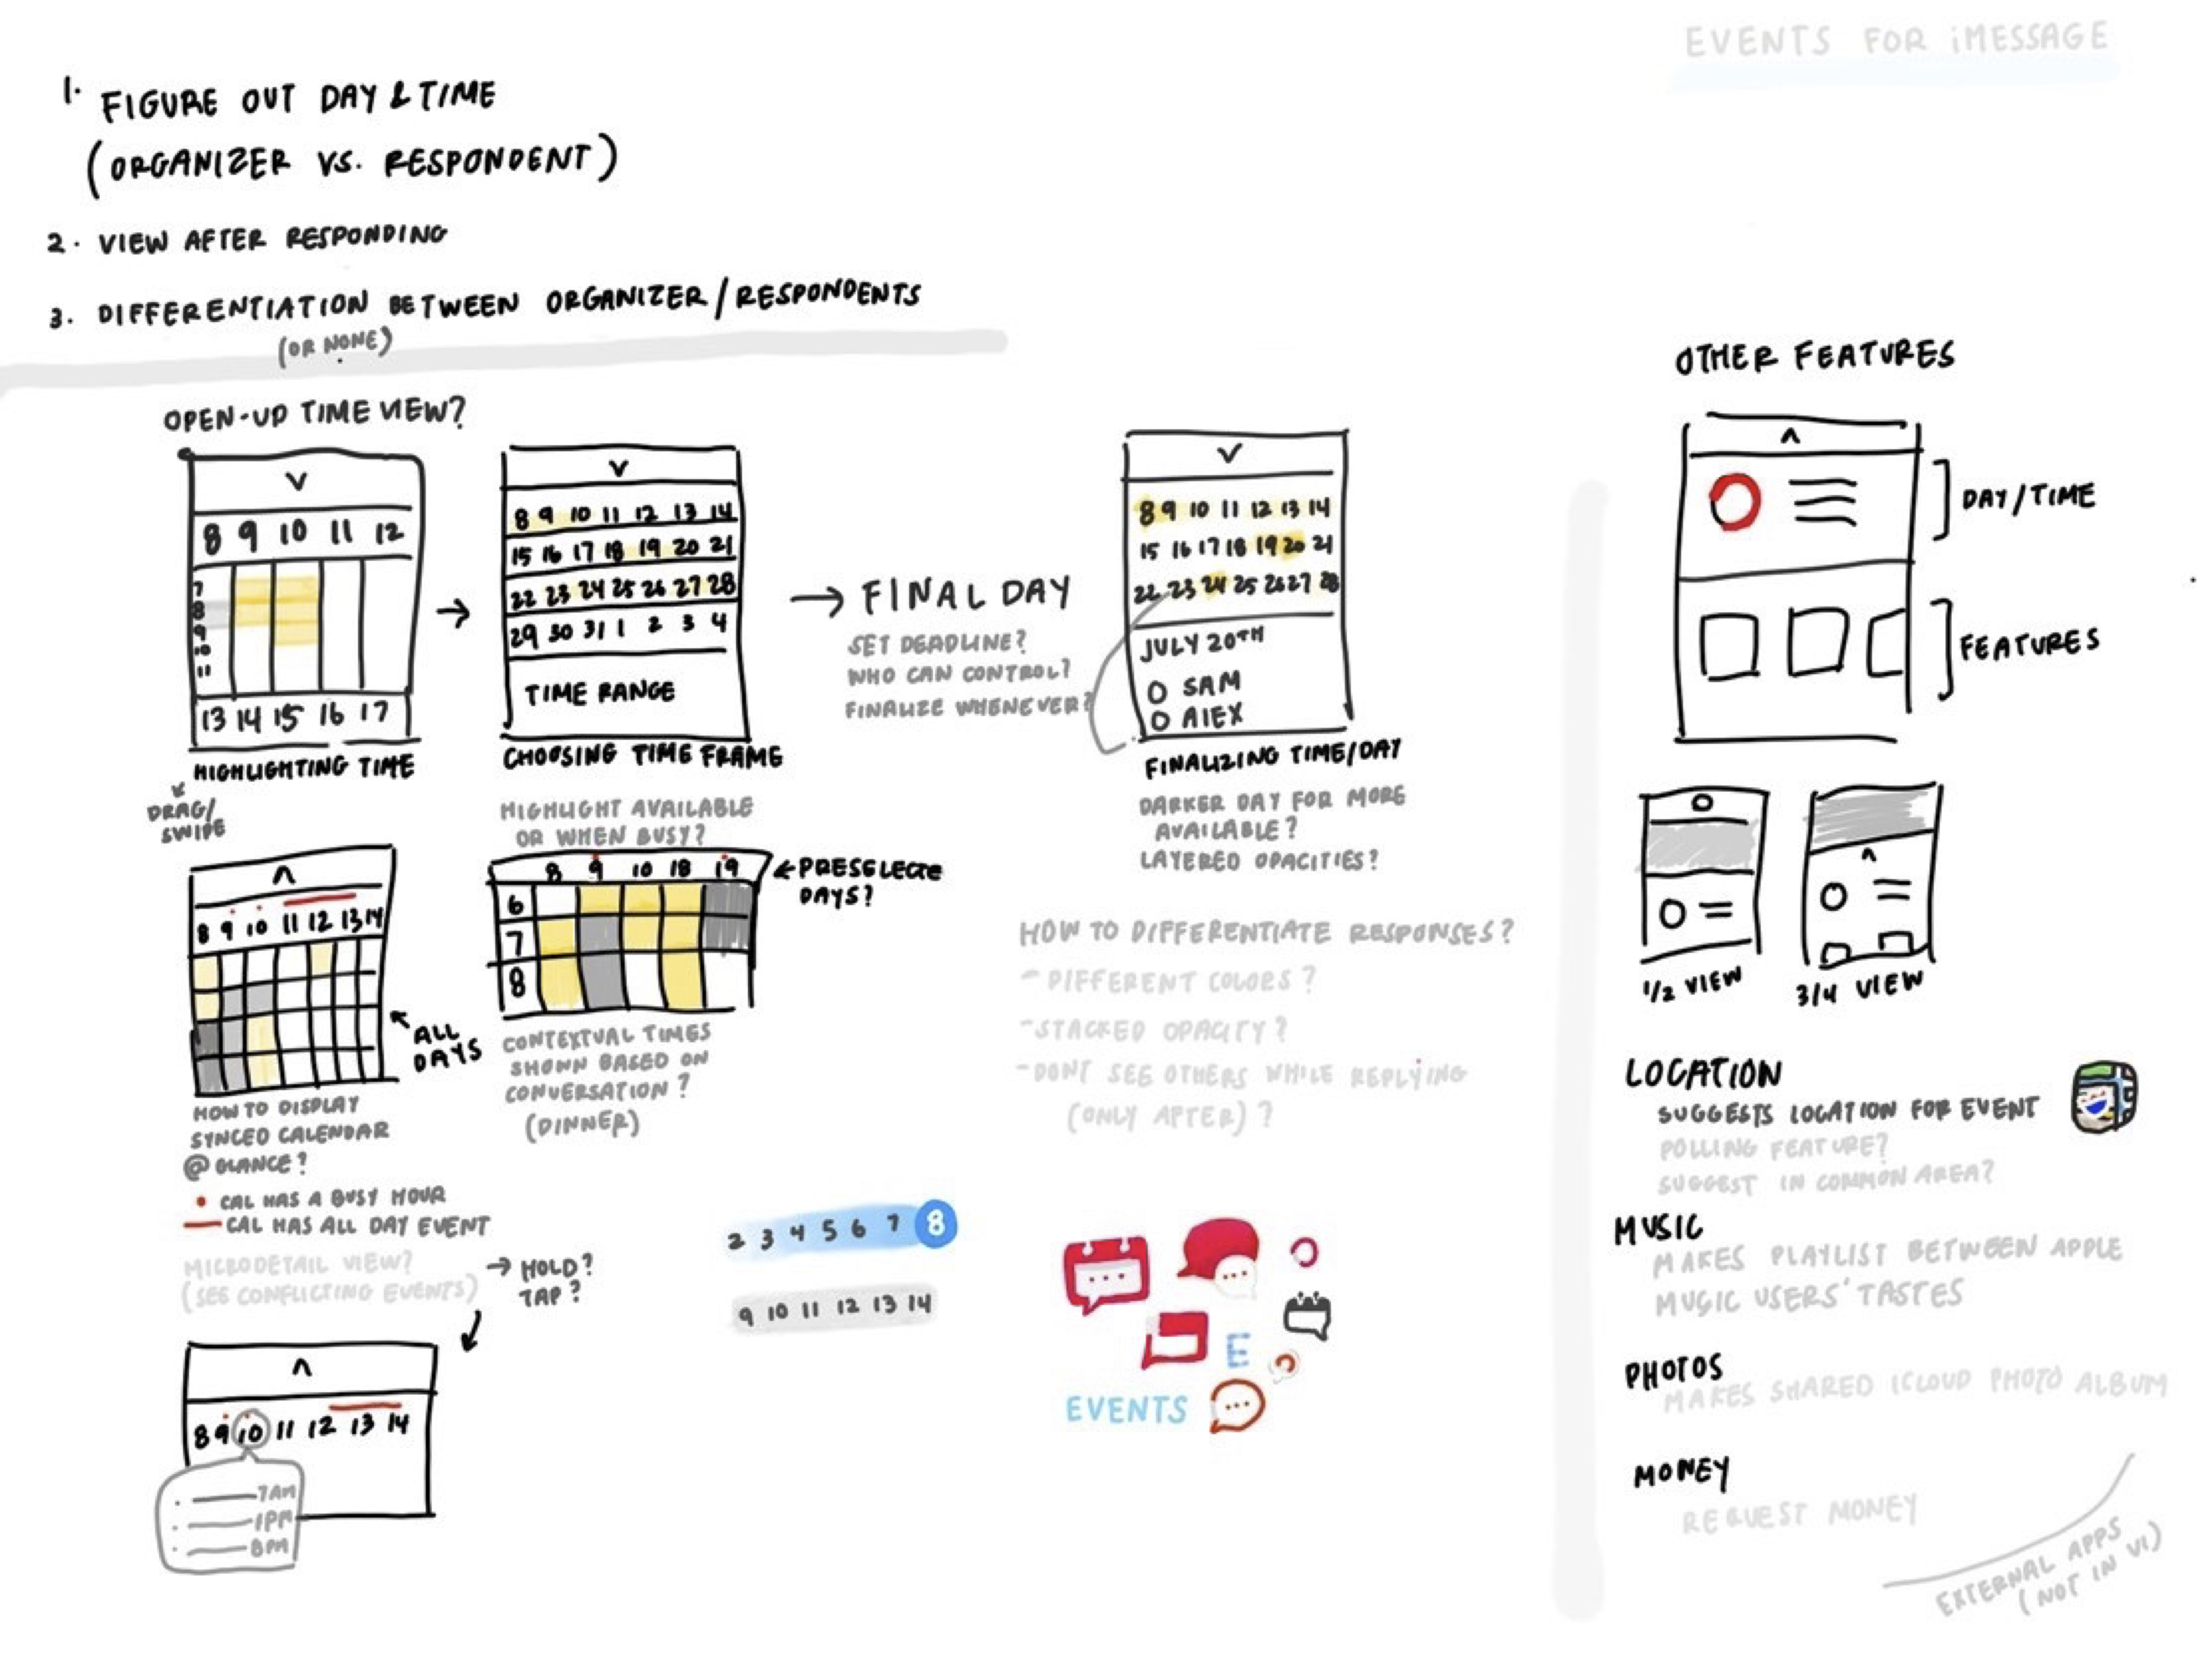 EVENTS FOR iMESSAGE
1. FIGURE OUT DAY & TIME
(ORGANIZER VS. RESPONDENT)
2. VIEW AFTER RESPONDING
3. DIFFERENTIATION BETWEEN ORGANIZER/RESPONDENTS
(OR NONE)
OPEN-UP TIME VIEW?
V
8 9 10 11 12
7
8
9
10
11
13 14 15 16 17
HIGHLIGHTING TIME
DRAG/
SWIPE
V
8 9 10 11 12 13 14
15 16 17 18 19 20 21
22 23 24 25 26 27 28
29 30 31 1 2 3 4
TIME RANGE
CHOOSING TIME FRAME
HIGHLIGHT AVAILABLE
OR WHEN BUSY?
→ FINAL DAY
SET DEADLINE?
WHO CAN CONTROL?
FINALIZE WHENEVER?
V
8 9 10 11 12 13 14
15 16 17 18 19 20 21
22 23 24 25 26 27 28
JULY 20TH
O SAM
O ALEX
FINALIZING TIME/DAY
DARKER DAY FOR MORE
AVAILABLE?
LAYERED OPACITIES?
8 9 10 11 12 13 14
← ALL
DAYS
HOW TO DISPLAY
SYNCED CALENDAR
@ GLANCE?
• CAL HAS A BUSY HOUR
— CAL HAS ALL DAY EVENT
MICRODETAIL VIEW?
(SEE CONFLICTING EVENTS)
→ HOLD?
TAP?
8 9 10 11 12 13 14
7AM
1PM
8PM
8 9 10 18 19
6
7
8
← PRESELECTE
DAYS?
CONTEXTUAL TIMES
SHOWN BASED ON
CONVERSATION?
(DINNER)
HOW TO DIFFERENTIATE RESPONSES?
- DIFFERENT COLORS?
- STACKED OPACITY?
- DONT SEE OTHERS WHILE REPLYING
(ONLY AFTER)?
2 3 4 5 6 7 8
9 10 11 12 13 14
E
EVENTS
OTHER FEATURES
DAY/TIME
FEATURES
1/2 VIEW
3/4 VIEW
LOCATION
SUGGESTS LOCATION FOR EVENT
POLLING FEATURE?
SUGGEST IN COMMON AREA?
MUSIC
MAKES PLAYLIST BETWEEN APPLE
MUSIC USERS' TASTES
PHOTOS
MAKES SHARED ICLOUD PHOTO ALBUM
MONEY
REQUEST MONEY
EXTERNAL APPS
(NOT IN V1)